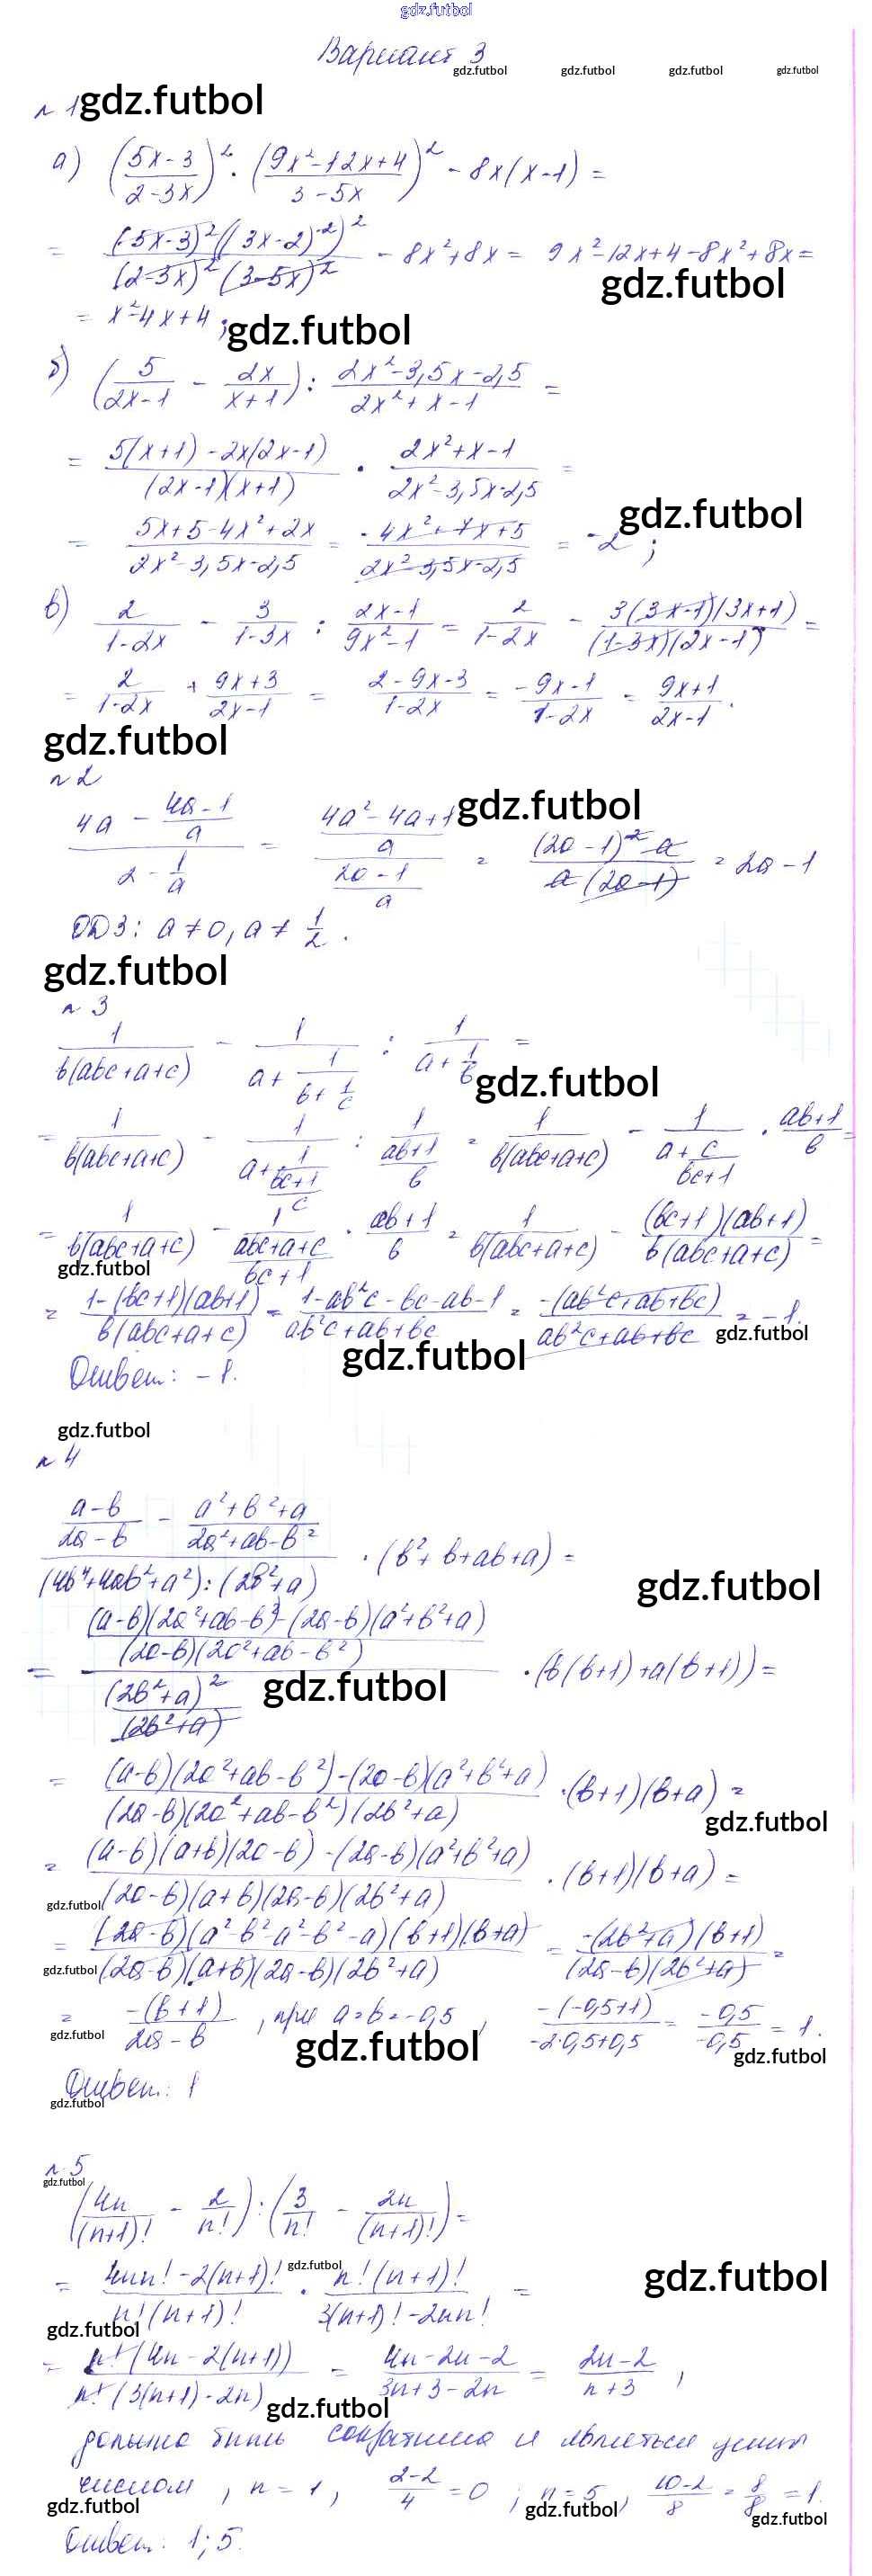 gdz.futbol
Вариант 3
gdz.futbol gdz.futbol gdz.futbol gdz.futbol
№ 1 gdz.futbol
а) ((5x-3)/(2-3x))² · ((9x²-12x+4)/(3-5x))² - 8x(x-1) =
= ((5x-3)²((3x-2)²)²)/((2-3x)²(3-5x)²) - 8x²+8x = 9x²-12x+4-8x²+8x =
gdz.futbol
= x²-4x+4; gdz.futbol
б) (5/(2x-1) - 2x/(x+1)) : (2x²-3,5x-2,5)/(2x²+x-1) =
= (5(x+1)-2x(2x-1))/((2x-1)(x+1)) · (2x²+x-1)/(2x²-3,5x-2,5) =
gdz.futbol
= (5x+5-4x²+2x)/(2x²-3,5x-2,5) = (-4x²+7x+5)/(2x²-3,5x-2,5) = -2;
в) 2/(1-2x) - 3/(1-3x) : (2x-1)/(9x²-1) = 2/(1-2x) - (3(3x-1)(3x+1))/((1-3x)(2x-1)) =
= 2/(1-2x) + (9x+3)/(2x-1) = (2-9x-3)/(1-2x) = (-9x-1)/(1-2x) = (9x+1)/(2x-1).
gdz.futbol
№ 2
(4a - (4a-1)/a)/(2 - 1/a) = ((4a²-4a+1)/a)/((2a-1)/a) = ((2a-1)² a)/(a(2a-1)) = 2a-1
gdz.futbol
ОДЗ: a≠0, a≠ 1/2.
gdz.futbol
№ 3
1/(b(abc+a+c)) - 1/(a+1/(b+1/c)) : 1/(a+1/b) =
gdz.futbol
= 1/(b(abc+a+c)) - 1/(a+1/((bc+1)/c)) : 1/((ab+1)/b) = 1/(b(abc+a+c)) - 1/(a+c/(bc+1)) · (ab+1)/b =
= 1/(b(abc+a+c)) - 1/((abc+a+c)/(bc+1)) · (ab+1)/b = 1/(b(abc+a+c)) - ((bc+1)(ab+1))/(b(abc+a+c)) =
gdz.futbol
= (1-(bc+1)(ab+1))/(b(abc+a+c)) = (1-ab²c-bc-ab-1)/(ab²c+ab+bc) = (-(ab²c+ab+bc))/(ab²c+ab+bc) = -1.
gdz.futbol
gdz.futbol
Ответ: -1.
gdz.futbol
№ 4
((a-b)/(2a-b) - (a²+b²+a)/(2a²+ab-b²))/((4b⁴+4ab²+a²):(2b²+a)) · (b²+b+ab+a) =
gdz.futbol
= (((a-b)(2a²+ab-b²)-(2a-b)(a²+b²+a))/((2a-b)(2a²+ab-b²)))/((2b²+a)²/(2b²+a)) · (b(b+1)+a(b+1)) =
gdz.futbol
= ((a-b)(2a²+ab-b²)-(2a-b)(a²+b²+a))/((2a-b)(2a²+ab-b²)(2b²+a)) · (b+1)(b+a) =
gdz.futbol
= ((a-b)(a+b)(2a-b)-(2a-b)(a²+b²+a))/((2a-b)(a+b)(2a-b)(2b²+a)) · (b+1)(b+a) =
gdz.futbol
= ((2a-b)(a²-b²-a²-b²-a)(b+1)(b+a))/((2a-b)(a+b)(2a-b)(2b²+a)) = (-(2b²+a)(b+1))/((2a-b)(2b²+a)) =
gdz.futbol
= (-(b+1))/(2a-b), при a=b=-0,5, (-(-0,5+1))/(-2·0,5+0,5) = (-0,5)/(-0,5) = 1.
gdz.futbol gdz.futbol gdz.futbol
Ответ: 1
gdz.futbol
№ 5
gdz.futbol
(4n/(n+1)! - 2/n!) : (3/n! - 2n/(n+1)!) =
gdz.futbol
= (4nn!-2(n+1)!)/(n!(n+1)!) · (n!(n+1)!)/(3(n+1)!-2nn!) =
gdz.futbol
gdz.futbol
= (n!(4n-2(n+1)))/(n!(3(n+1)-2n)) = (4n-2n-2)/(3n+3-2n) = (2n-2)/(n+3),
gdz.futbol
должна быть сократима и являться целым
числом, n=1, (2-2)/4 = 0; n=5, (10-2)/8 = 8/8 = 1.
gdz.futbol gdz.futbol gdz.futbol
Ответ: 1; 5.